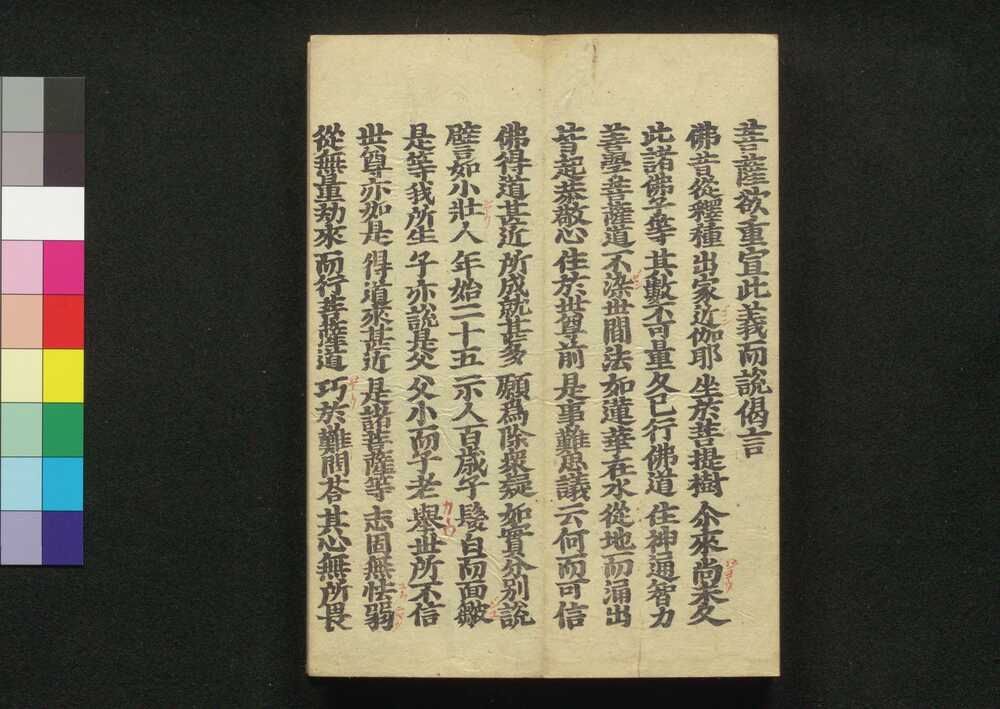 菩薩欲重宣此義而說偈言
佛昔從釋種 出家近伽耶 坐於菩提樹 尒來尚未久
此諸佛子等 其數不可量 久已行佛道 住神通智力
善學菩薩道 不染世間法 如蓮華在水 從地而涌出
皆起恭敬心 住於世尊前 是事難思議 云何而可信
佛得道甚近 所成就甚多 願爲除衆疑 如實分別說
譬如小壯人 年始二十五 示人百歲子 髮白而面皺
是等我所生 子亦說是父 父小而子老 舉世所不信
世尊亦如是 得道來甚近 是諸菩薩等 志固無怯弱
從無量劫來 而行菩薩道 巧於難問荅 其心無所畏